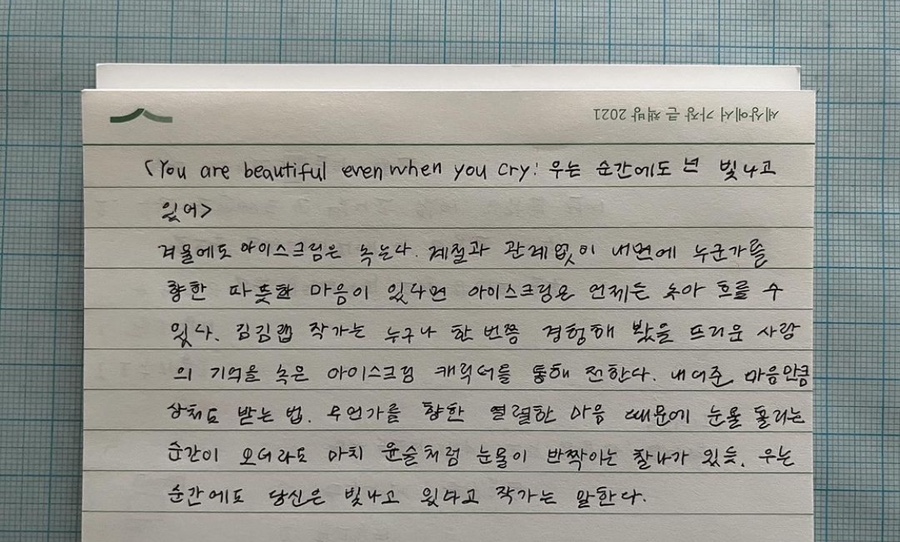 세상에서 가장 큰 책방 2021
<You are beautiful even when you cry: 우는 순간에도 넌 빛나고
있어>
겨울에도 아이스크림은 녹는다. 계절과 관계없이 내면에 누군가를
향한 따뜻한 마음이 있다면 아이스크림은 언제든 녹아 흐를 수
있다. 김김랩 작가는 누구나 한 번쯤 경험해 봤을 뜨거운 사랑
의 기억을 녹은 아이스크림 캐릭터를 통해 전한다. 내어준 마음만큼
상처도 받는 법. 무언가를 향한 열렬한 마음 때문에 눈물 흘리는
순간이 오더라도 마치 윤슬처럼 눈물이 반짝이는 찰나가 있듯, 우는
순간에도 당신은 빛나고 있다고 작가는 말한다.